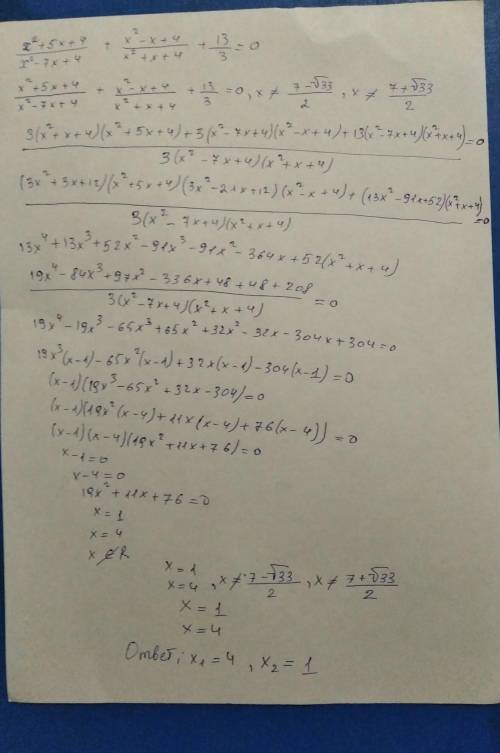 (x²+5x+4)/(x²-7x+4) + (x²-x+4)/(x²+x+4) + 13/3 = 0
(x²+5x+4)/(x²-7x+4) + (x²-x+4)/(x²+x+4) + 13/3 = 0, x ≠ (7-√33)/2, x ≠ (7+√33)/2
(3(x²+x+4)(x²+5x+4)+3(x²-7x+4)(x²-x+4)+13(x²-7x+4)(x²+x+4))/(3(x²-7x+4)(x²+x+4)) = 0
((3x²+3x+12)(x²+5x+4)(3x²-21x+12)(x²-x+4)+(13x²-91x+52)(x²+x+4))/(3(x²-7x+4)(x²+x+4)) = 0
13x⁴+13x³+52x²-91x³-91x²-364x+52(x²+x+4)
(19x⁴-84x³+97x²-336x+48+48+208)/(3(x²-7x+4)(x²+x+4)) = 0
19x⁴-19x³-65x³+65x²+32x²-32x-304x+304=0
19x³(x-1)-65x²(x-1)+32x(x-1)-304(x-1)=0
(x-1)(19x³-65x²+32x-304)=0
(x-1)(19x²(x-4)+11x(x-4)+76(x-4))=0
(x-1)(x-4)(19x²+11x+76)=0
x-1=0
x-4=0
19x²+11x+76=0
x=1
x=4
x∉R
x=1
x=4, x ≠ (7-√33)/2, x ≠ (7+√33)/2
x=1
x=4
Ответ: x₁=4, x₂=1